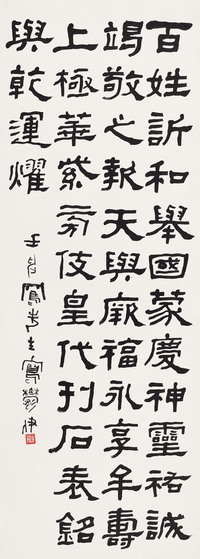 百姓訢和舉國蒙慶神靈祐誠
竭敬之報天與厥福永享牟壽
上極華紫旁伎皇代刊石表銘
與乾運燿